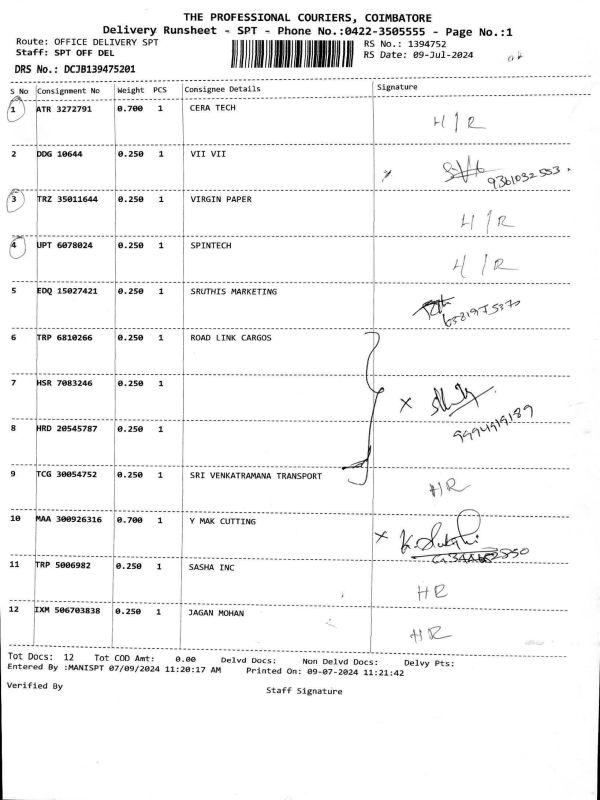 THE PROFESSIONAL COURIERS, COIMBATORE
Delivery Runsheet - SPT - Phone No.:0422-3505555 - Page No.:1
Route: OFFICE DELIVERY SPT
RS No.: 1394752
Staff: SPT OFF DEL
RS Date: 09-Jul-2024
DRS No.: DCJB139475201
S No Consignment No Weight PCS Consignee Details Signature
1 ATR 3272791 0.700 1 CERA TECH H/R
2 DDG 10644 0.250 1 VII VII 9361032553.
3 TRZ 35011644 0.250 1 VIRGIN PAPER H/R
4 UPT 6078024 0.250 1 SPINTECH H/R
5 EDQ 15027421 0.250 1 SRUTHIS MARKETING
6 TRP 6810266 0.250 1 ROAD LINK CARGOS
7 HSR 7083246 0.250 1 X
8 HRD 20545787 0.250 1 9994919189
9 TCG 30054752 0.250 1 SRI VENKATRAMANA TRANSPORT HR
10 MAA 300926316 0.700 1 Y MAK CUTTING X
11 TRP 5006982 0.250 1 SASHA INC HR
12 IXM 506703838 0.250 1 JAGAN MOHAN HR
Tot Docs: 12 Tot COD Amt: 0.00 Delvd Docs: Non Delvd Docs: Delvy Pts:
Entered By :MANISPT 07/09/2024 11:20:17 AM Printed On: 09-07-2024 11:21:42
Verified By Staff Signature